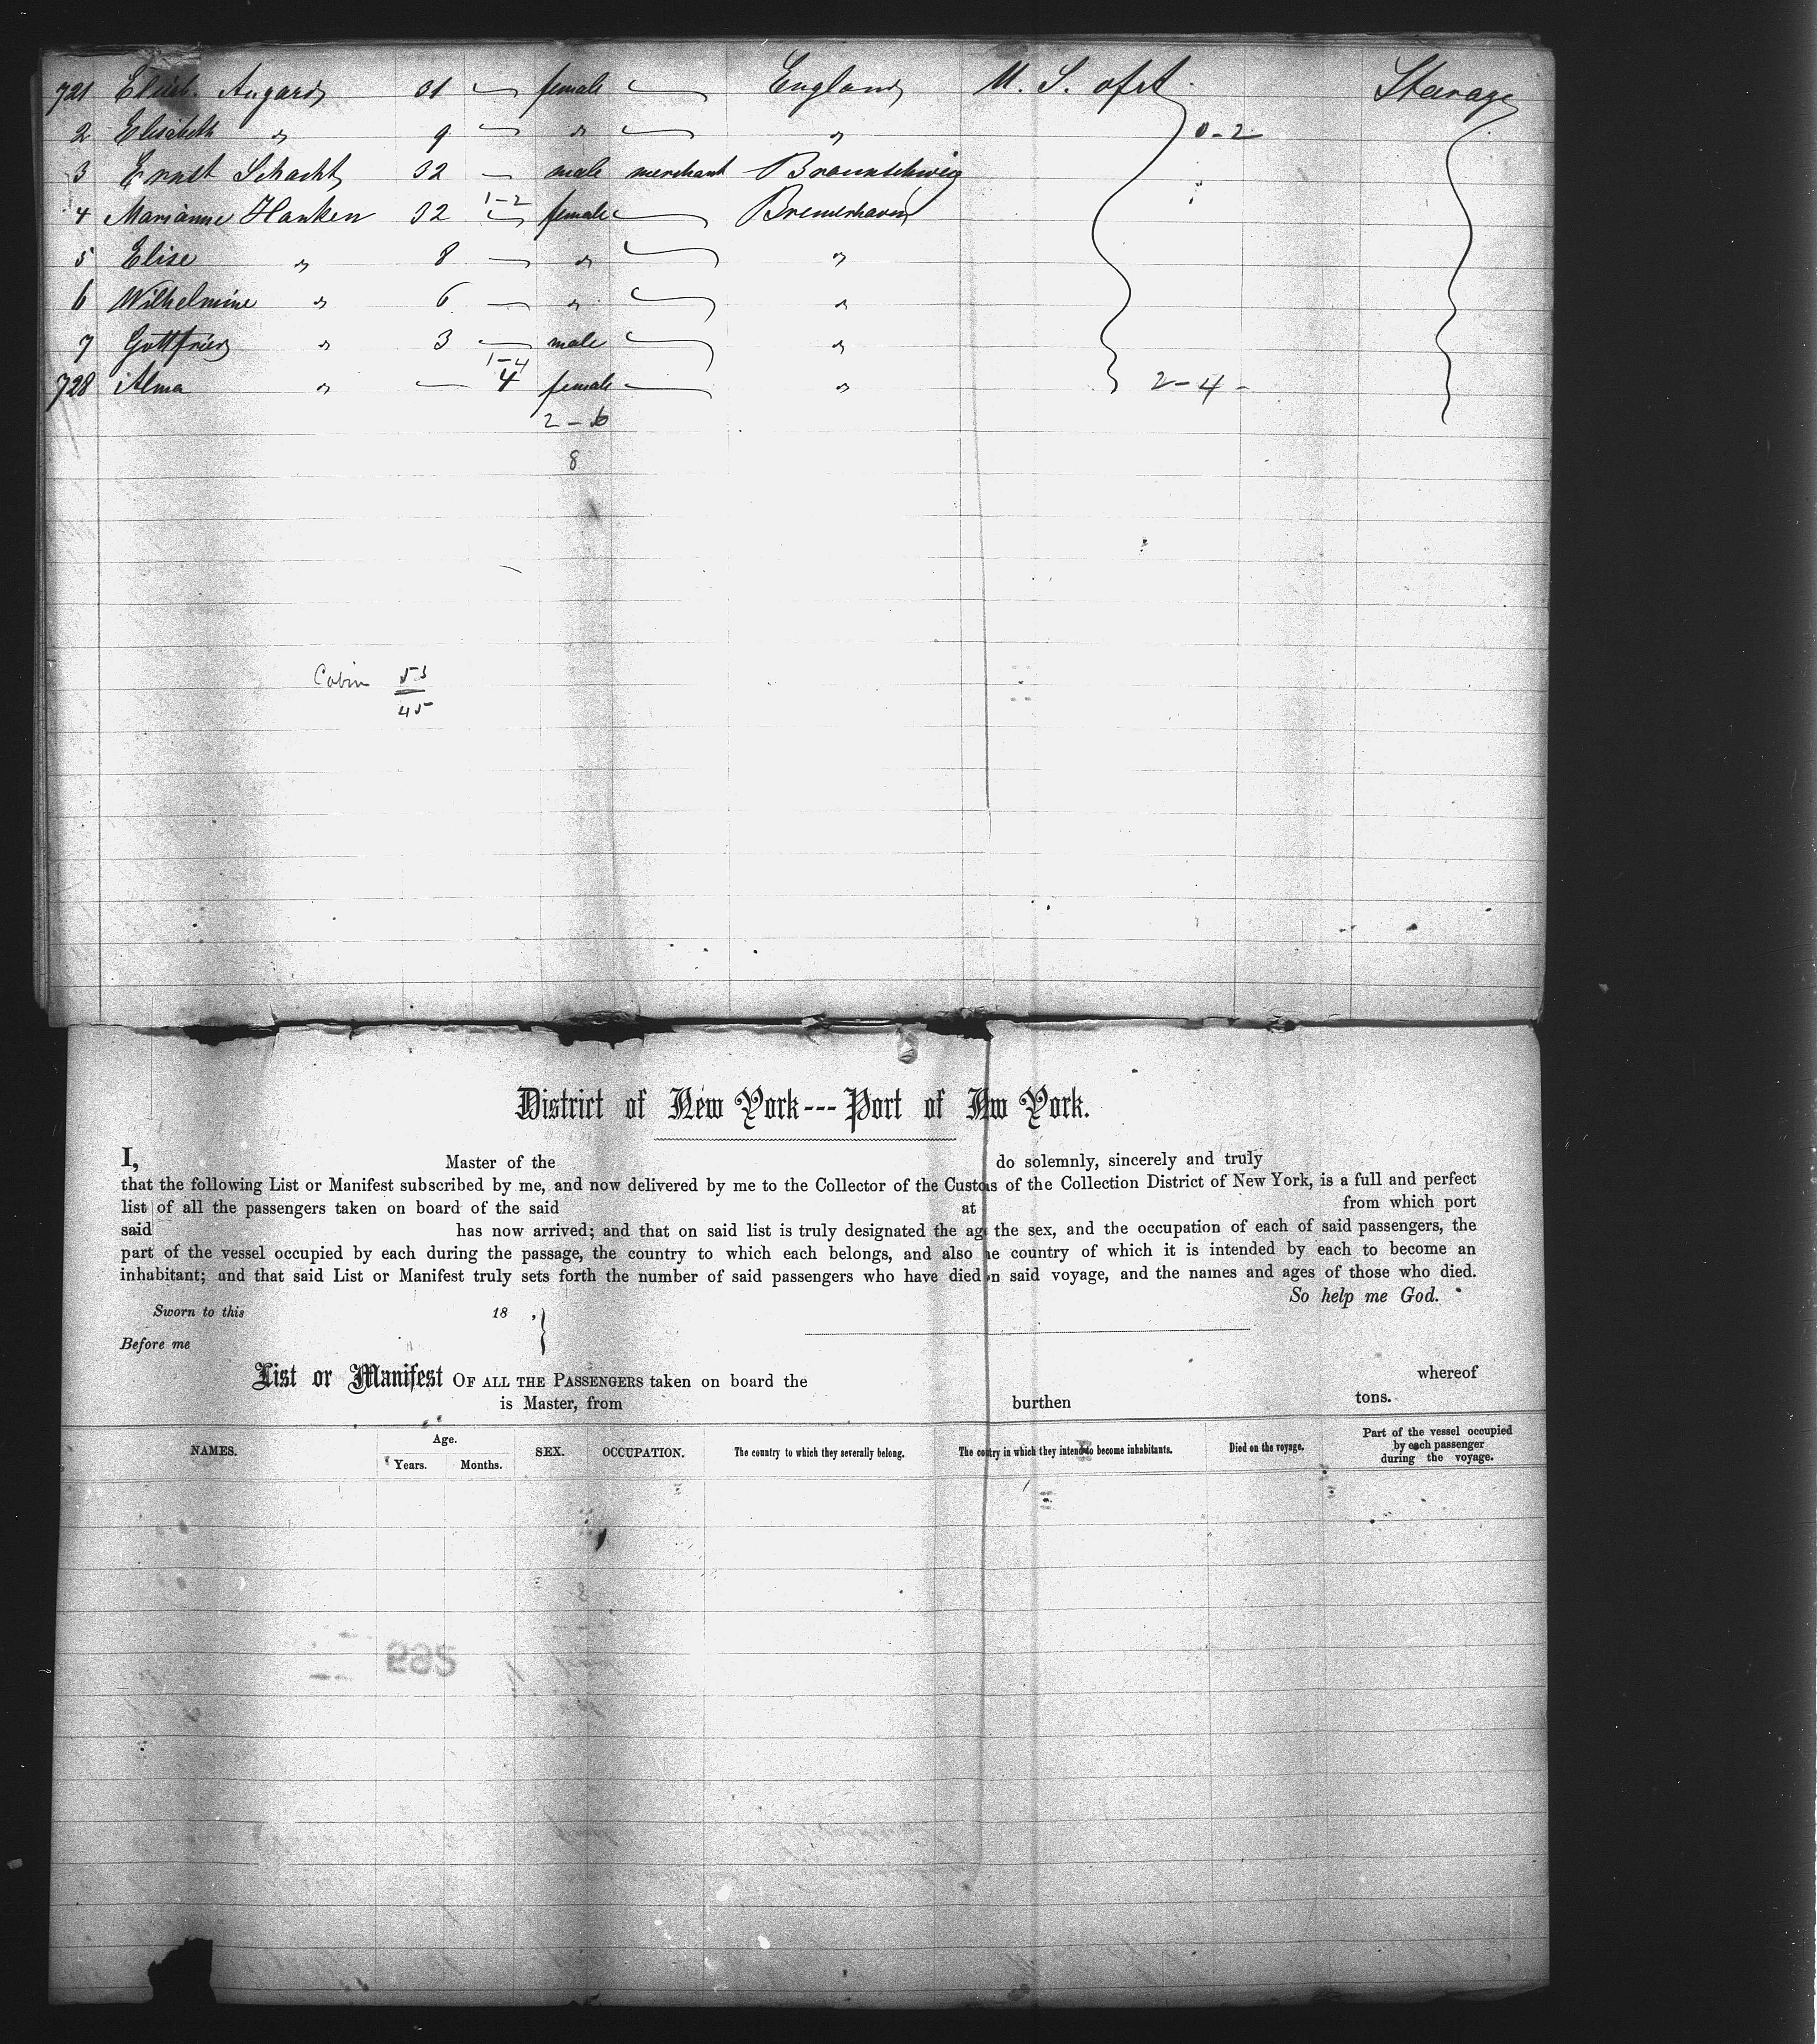 721 Elisb. Augard 31 female England U. S. of A. Steerage
2 Elisabeth " 9 " " 0-2
3 Ernst Schacht 32 male merchant Braunschweig
4 Marianne Hanken 32 1-2 female Bremerhaven
5 Elise " 8 " "
6 Wilhelmine " 6 " "
7 Gottfried " 3 male "
1-4
728 Alma " 4 female " 2-4-
2-6
8
Cabin 53
45
District of New York---Port of New York.
I, Master of the do solemnly, sincerely and truly
that the following List or Manifest subscribed by me, and now delivered by me to the Collector of the Customs of the Collection District of New York, is a full and perfect
list of all the passengers taken on board of the said at from which port
said has now arrived; and that on said list is truly designated the age the sex, and the occupation of each of said passengers, the
part of the vessel occupied by each during the passage, the country to which each belongs, and also the country of which it is intended by each to become an
inhabitant; and that said List or Manifest truly sets forth the number of said passengers who have died on said voyage, and the names and ages of those who died.
So help me God.
Sworn to this 18 ,
Before me
List or Manifest OF ALL THE PASSENGERS taken on board the whereof
is Master, from burthen tons.
NAMES. Age. Years. Months. SEX. OCCUPATION. The country to which they severally belong. The country in which they intend to become inhabitants. Died on the voyage. Part of the vessel occupied by each passenger during the voyage.